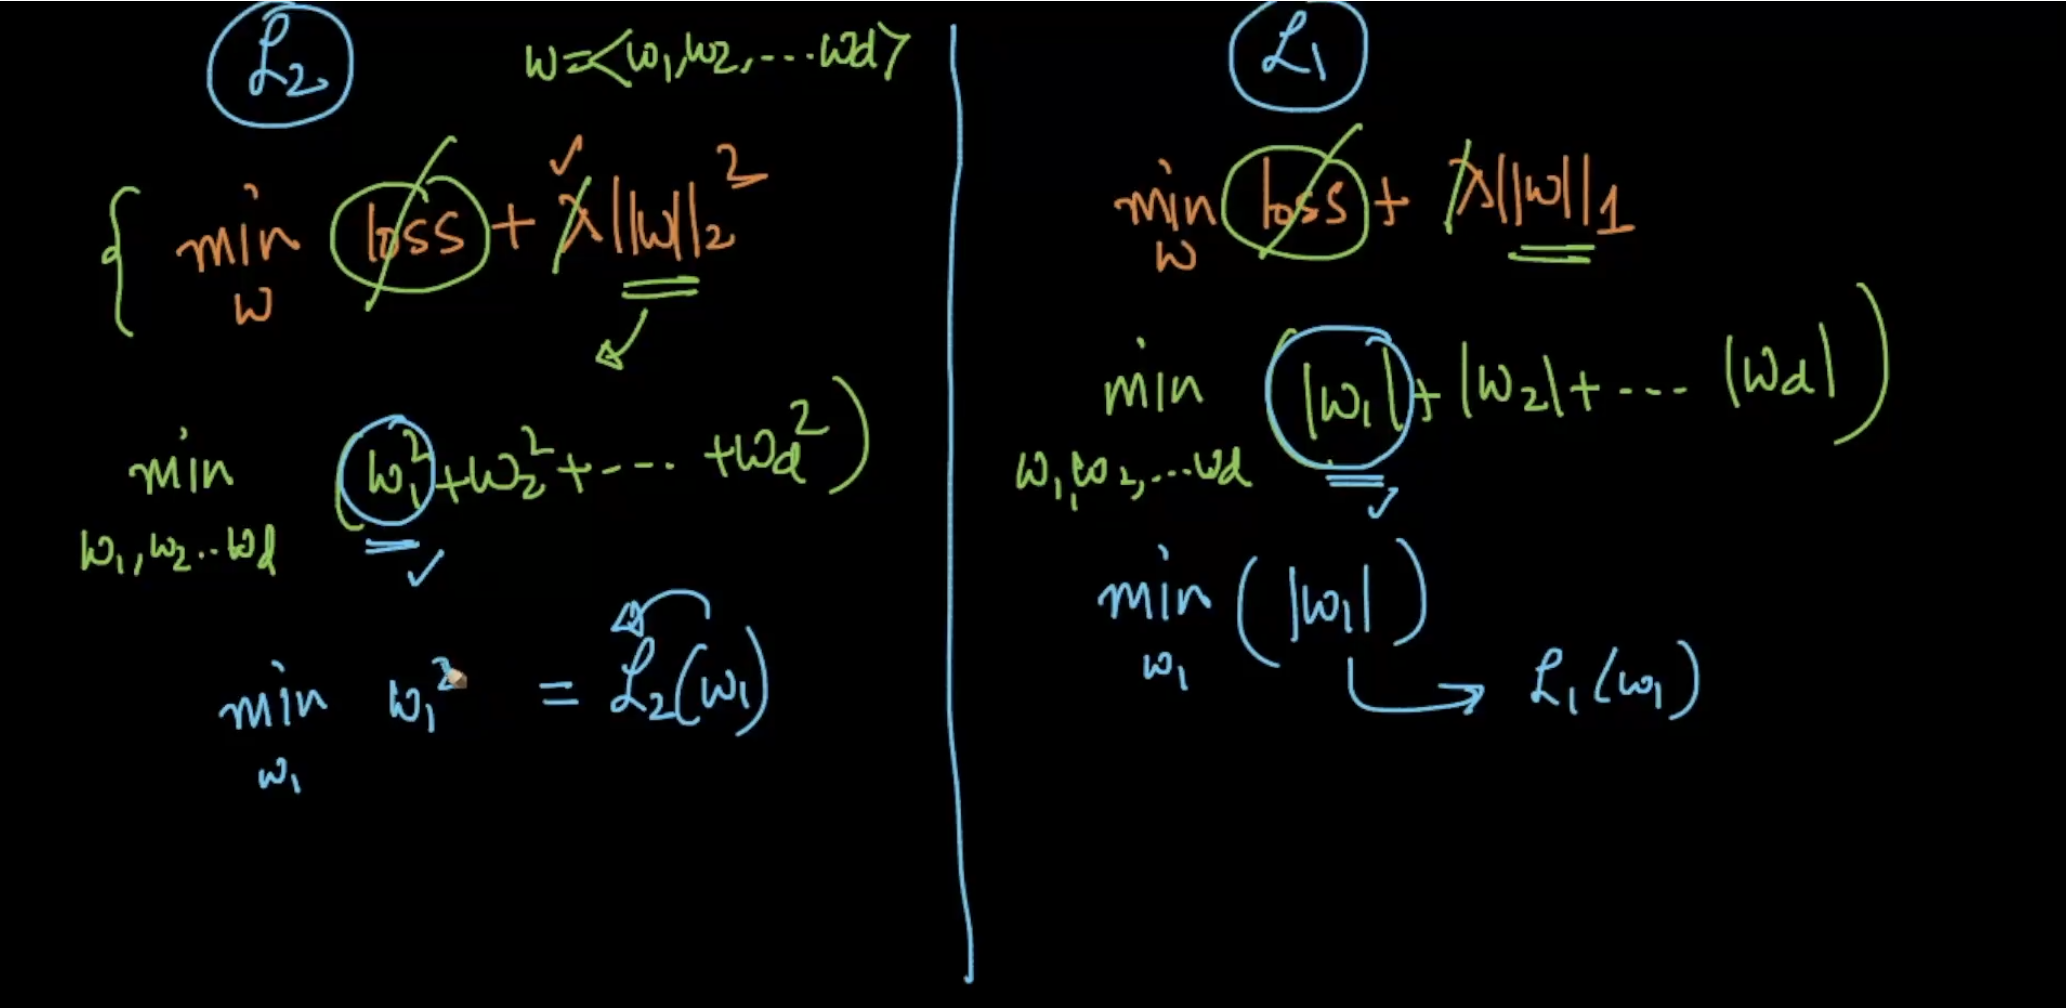 ℒ₂ w=<w₁,w₂,...wd>
min loss + λ||w||₂²
w
min (w₁²+w₂²+---- +wd²)
w₁,w₂..wd
min w₁² = ℒ₂(w₁)
w₁
ℒ₁
min loss + λ||w||₁
w
min (|w₁|+|w₂|+--- |wd|)
w₁,w₂,...wd
min (|w₁|)
w₁
ℒ₁(w₁)